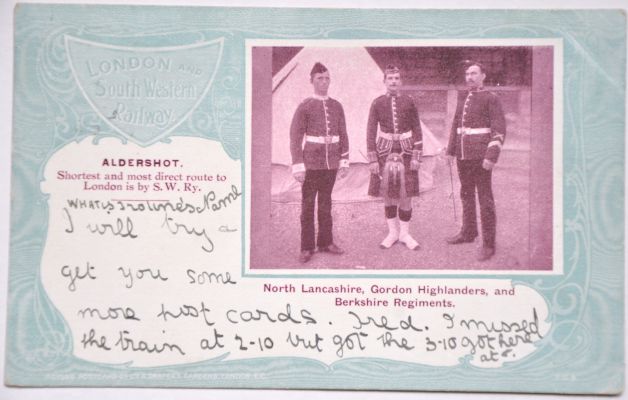 LONDON AND
South Western
Railway.
ALDERSHOT.
Shortest and most direct route to
London is by S. W. Ry.
WHAT is Name
I will try a
get you some
more post cards. Fred. I missed
the train at 2-10 but got the 3-10 got here
at
North Lancashire, Gordon Highlanders, and
Berkshire Regiments.